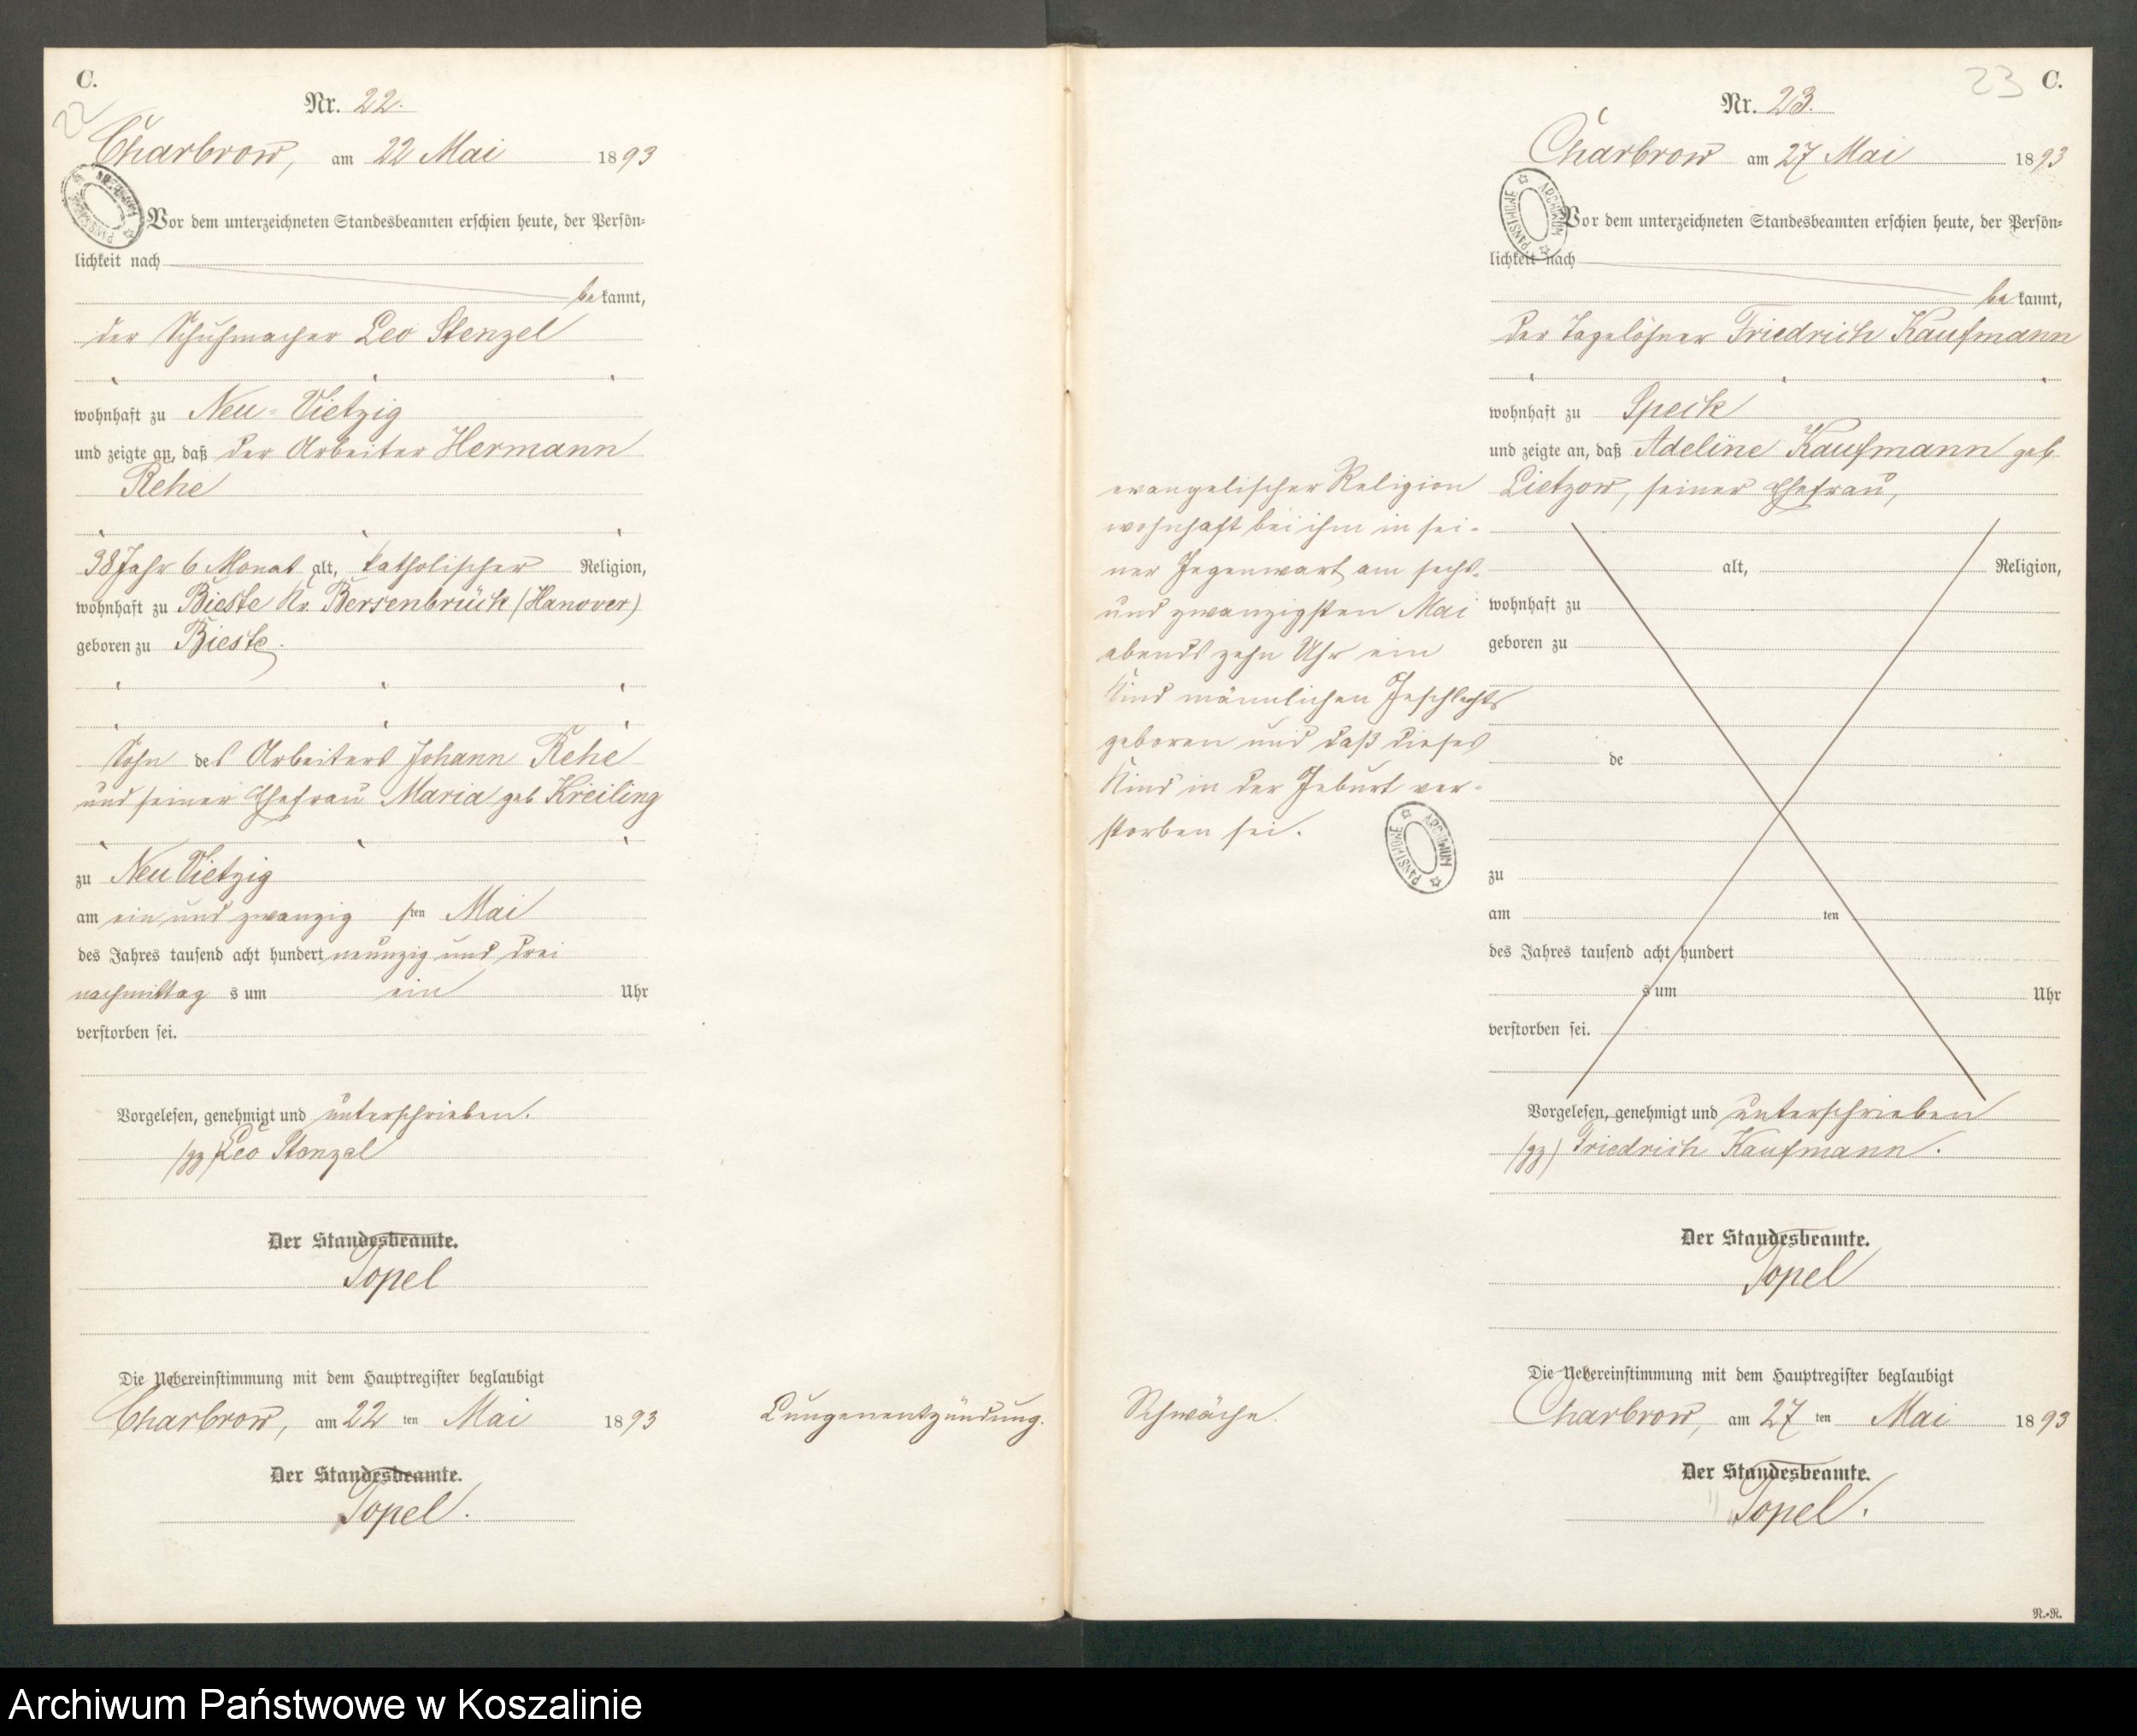 C.
22
Nr. 22.
Charbrow, am 22 Mai 1893
ARCHIWUM PAŃSTWOWE
Vor dem unterzeichneten Standesbeamten erschien heute, der Persön-
lichkeit nach
bekannt,
der Schuhmacher Leo Stenzel
wohnhaft zu Neu-Vietzig
und zeigte an, daß der Arbeiter Hermann
Rehe
38 Jahr 6 Monat alt, katholischer Religion,
wohnhaft zu Bieste Kr. Bersenbrück (Hanover)
geboren zu Bieste.
Sohn des Arbeiters Johann Rehe
und seiner Ehefrau Maria geb Kreiling
zu Neu Vietzig
am ein und zwanzig sten Mai
des Jahres tausend acht hundert neunzig und drei
nachmittag s um ein Uhr
verstorben sei.
Vorgelesen, genehmigt und unterschrieben.
(gz) Leo Stenzel
Der Standesbeamte.
Topel
Die Uebereinstimmung mit dem Hauptregister beglaubigt
Charbrow, am 22 ten Mai 1893
Der Standesbeamte.
Topel.
Lungenentzündung.
23 C.
Nr. 23.
Charbrow am 27 Mai 1893
ARCHIWUM PAŃSTWOWE
Vor dem unterzeichneten Standesbeamten erschien heute, der Persön-
lichkeit nach
bekannt,
der Tagelöhner Friedrich Kaufmann
wohnhaft zu Speck
und zeigte an, daß Adeline Kaufmann geb
Lietzow, seiner Ehefrau,
evangelischer Religion
wohnhaft bei ihm in sei-
ner Gegenwart am sechs-
und zwanzigsten Mai
abends zehn Uhr ein
Kind männlichen Geschlechts
geboren und daß dieses
Kind in der Geburt ver-
storben sei.
ARCHIWUM PAŃSTWOWE
alt, Religion,
wohnhaft zu
geboren zu
de
zu
am ten
des Jahres tausend acht hundert
s um Uhr
verstorben sei.
Vorgelesen, genehmigt und unterschrieben
(gz) Friedrich Kaufmann.
Der Standesbeamte.
Topel
Die Uebereinstimmung mit dem Hauptregister beglaubigt
Schwäche.
Charbrow, am 27 ten Mai 1893
Der Standesbeamte.
Topel.
N.-N.
Archiwum Państwowe w Koszalinie